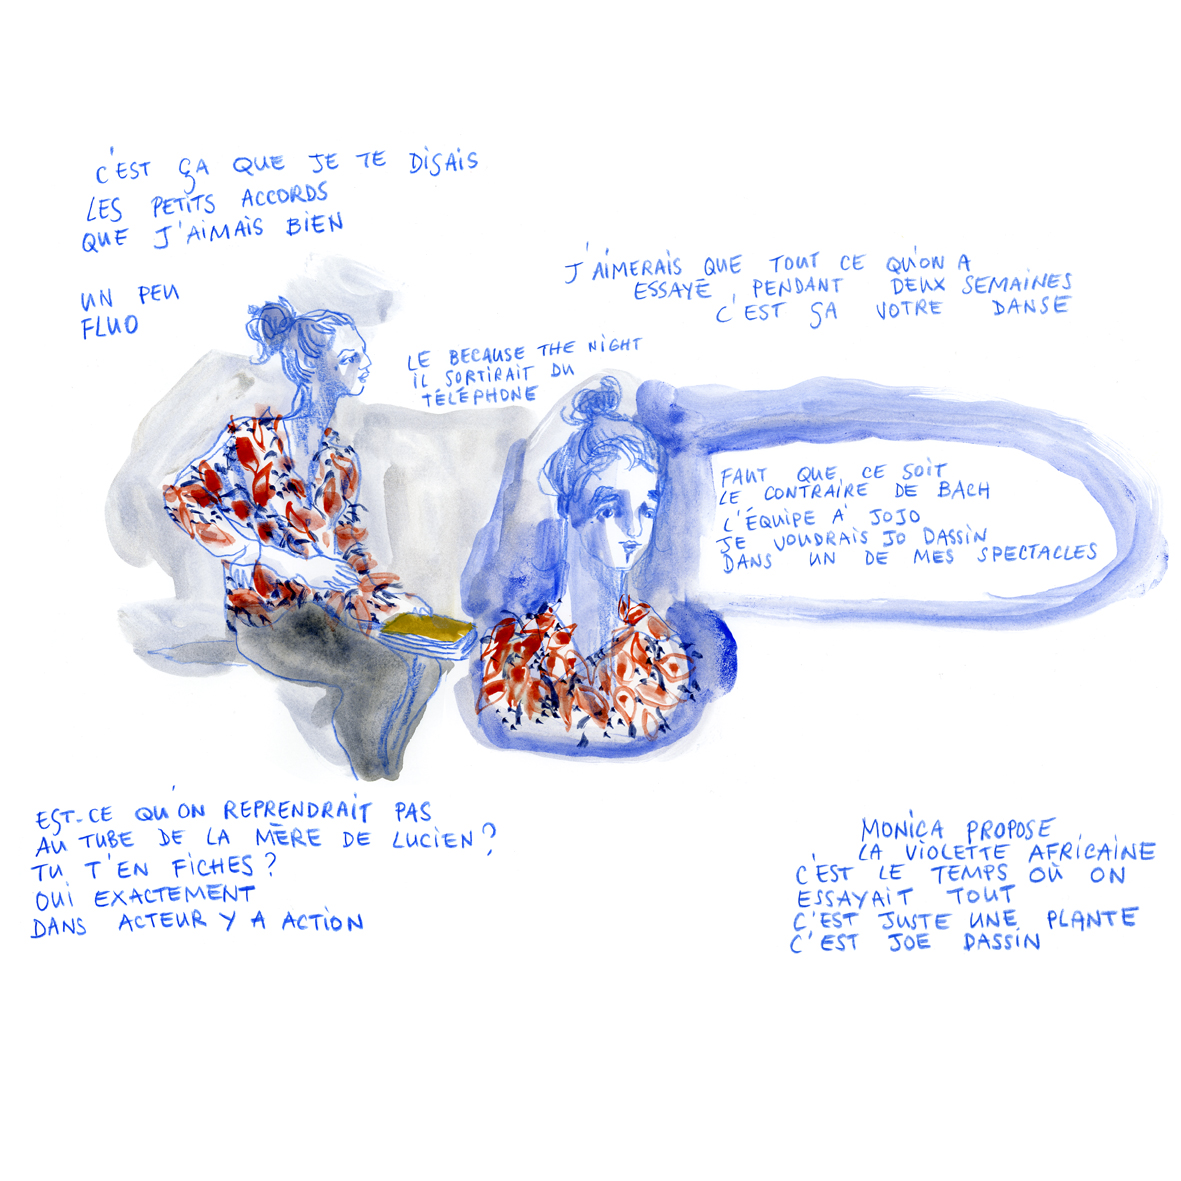 C'EST ÇA QUE JE TE DISAIS
LES PETITS ACCORDS
QUE J'AIMAIS BIEN
UN PEU
FLUO
J'AIMERAIS QUE TOUT CE QU'ON A
ESSAYÉ PENDANT DEUX SEMAINES
C'EST ÇA VOTRE DANSE
LE BECAUSE THE NIGHT
IL SORTIRAIT DU
TÉLÉPHONE
FAUT QUE CE SOIT
LE CONTRAIRE DE BACH
L'ÉQUIPE À JOJO
JE VOUDRAIS JO DASSIN
DANS UN DE MES SPECTACLES
EST-CE QU'ON REPRENDRAIT PAS
AU TUBE DE LA MÈRE DE LUCIEN ?
TU T'EN FICHES ?
OUI EXACTEMENT
DANS ACTEUR Y A ACTION
MONICA PROPOSE
LA VIOLETTE AFRICAINE
C'EST LE TEMPS OÙ ON
ESSAYAIT TOUT
C'EST JUSTE UNE PLANTE
C'EST JOE DASSIN